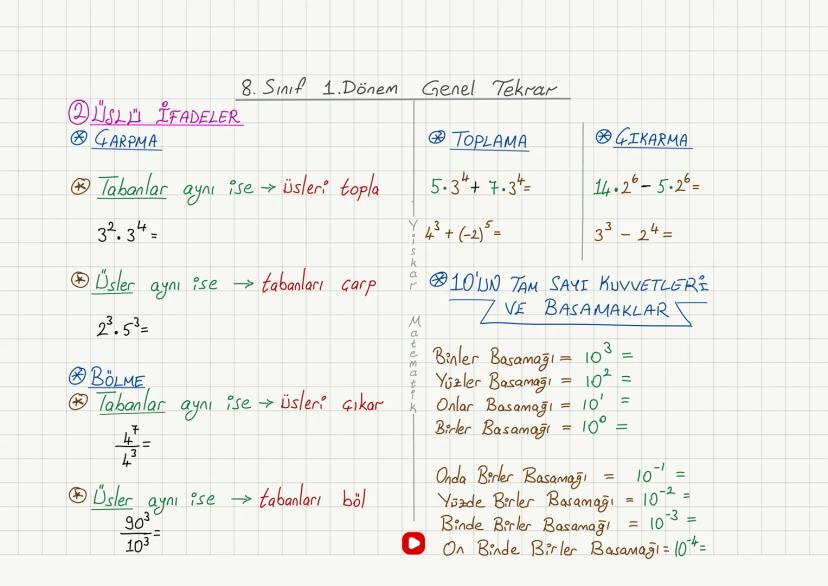 8. Sınıf 1.Dönem Genel Tekrar
② ÜSLÜ İFADELER
⊛ ÇARPMA
⊛ Tabanlar aynı ise → üsleri topla
3² · 3⁴ =
⊛ Üsler aynı ise → tabanları çarp
2³ · 5³ =
⊛ BÖLME
⊛ Tabanlar aynı ise → üsleri çıkar
4⁷/4³ =
⊛ Üsler aynı ise → tabanları böl
90³/10³ =
Yiişkar Matematik
⊛ TOPLAMA
5·3⁴ + 7·3⁴ =
4³ + (-2)⁵ =
⊛ ÇIKARMA
14·2⁶ - 5·2⁶ =
3³ - 2⁴ =
⊛ 10'UN TAM SAYI KUVVETLERİ
VE BASAMAKLAR
Binler Basamağı = 10³ =
Yüzler Basamağı = 10² =
Onlar Basamağı = 10¹ =
Birler Basamağı = 10⁰ =
Onda Birler Basamağı = 10⁻¹ =
Yüzde Birler Basamağı = 10⁻² =
Binde Birler Basamağı = 10⁻³ =
On Binde Birler Basamağı = 10⁻⁴ =